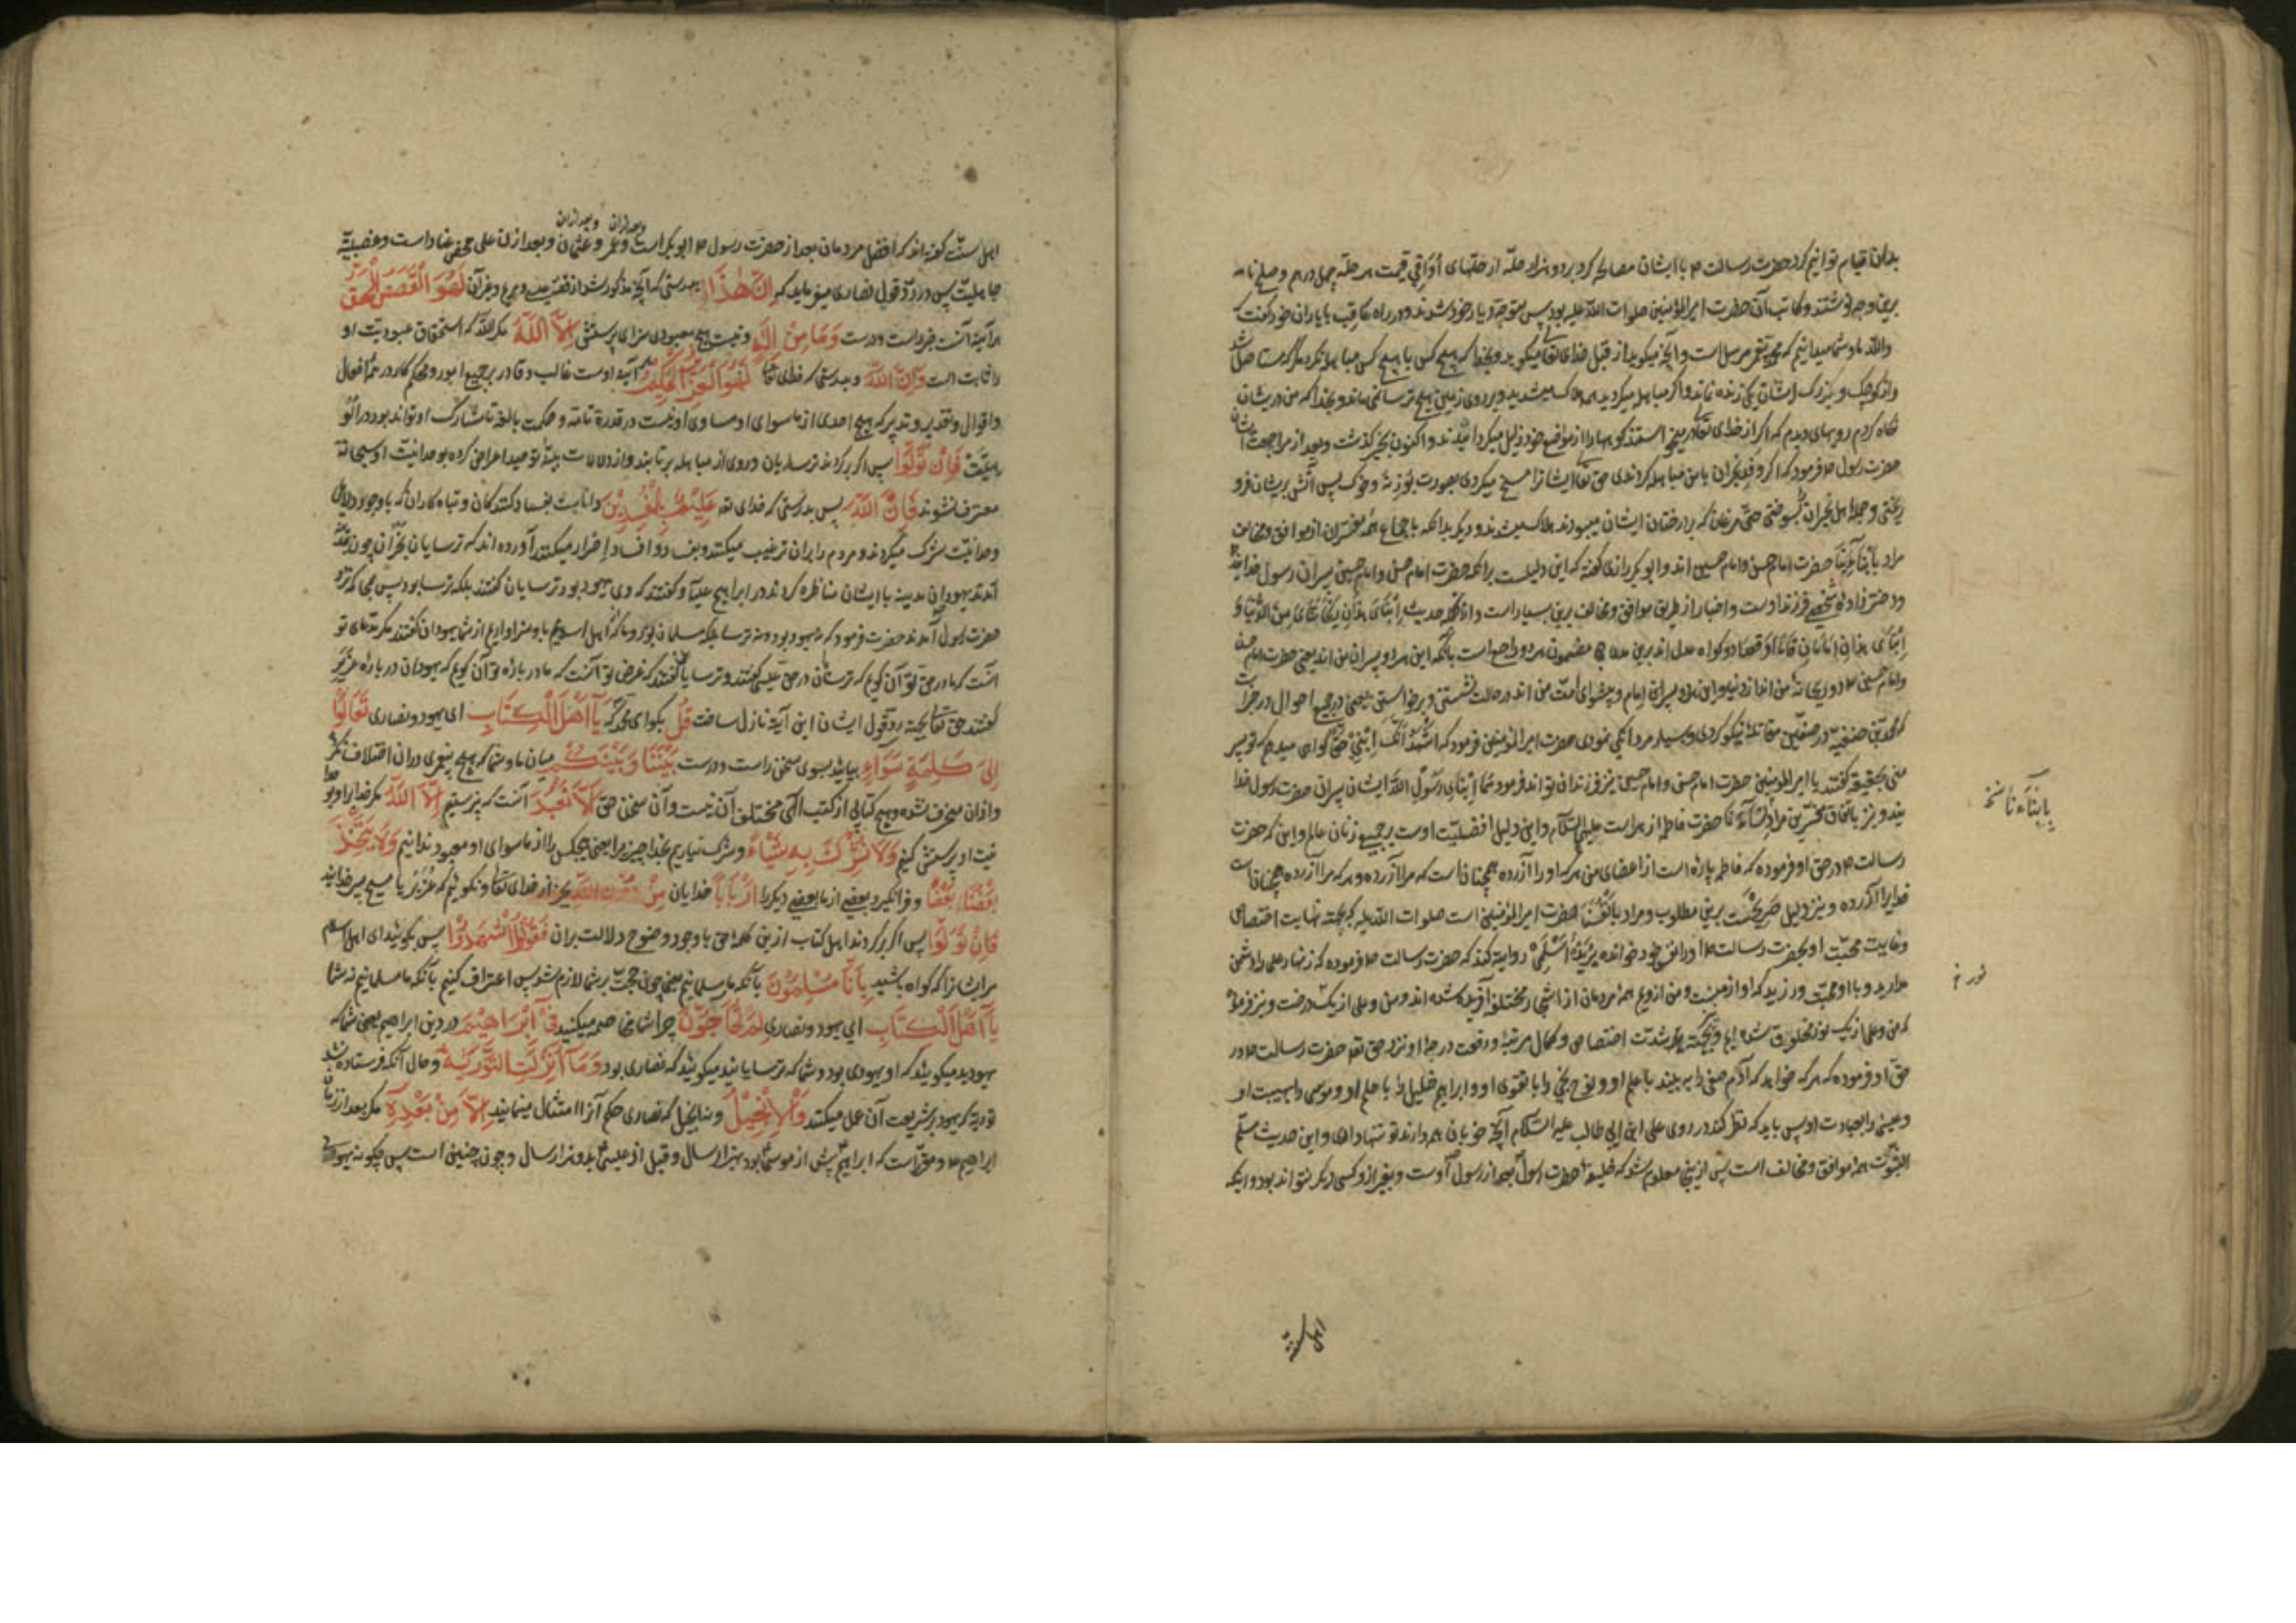 بدان قیام توانیم کرد حضرت رسالت ۴ با ایشان مصالحه کرد بر دو هزار حله از حلهای اواقی قیمت هر حله چهل درهم و صلح نامه
برین وجه نوشتند و کاتب آن حضرت امیر المؤمنین صلوات الله علیه بود پس متوجه دیار خود شدند و در راه عاقب با یاران خود گفت که
والله ما و شما میدانیم که محمد پیغمبر مرسل است و آنچه میگوید از قبل خدای تعالی میگوید و بخدا که هیچ کس با هیچ کس مباهله نکرد مگر که مستاصل شد
و از کوچک و بزرک ایشان یکی زنده نماند و اگر مباهله میکردید همه هلاک میشدید و بر روی زمین هیچ ترسا نمی ماند و بخدا که من در ایشان
نگاه کردم رویهای دیدم که اگر از خدای تعالی میخواستند کوهها را از مواضع خود زایل میکردانیدند و اکنون بخیر گذشت و بعد از مراجعت ایشان
حضرت رسول ۴ فرمود که اگر وفد نجران با من مباهله کردندی حق تعالی ایشانرا مسخ میکردی بصورت بوزنه و خوک پس آتش بریشان فرو
ریختی و جمله اهل نجران بسوختی حتی مرغان که بر درختان ایشان میبودند هلاک میشدند و دیگر بدانکه باجماع همه مفسران از موافق و مخالف
مراد بابناءنا حضرت امام حسن و امام حسین اند و ابو بکر رازی گفته که این دلیلست برانکه حضرت امام حسن و امام حسین پسران رسول خدایند
و دختر زاده شخصی فرزند اوست و اخبار از طریق موافق و مخالف برین بسیار است و
ابنای هذان امامان قاما او قعدا دو کواه عدل اند برین مدعا چه مضمون هر دو راجع است بآنکه این هر دو پسران من اند یعنی حضرت امام حسن
و امام حسین ۴ دو ریحانه من اند از دنیا و این هر دو پسران امام و پیشوای امت من اند در حالت نشستن و برخواستن یعنی در جمیع احوال
که محمد بن حنفیه در صفین مقاتله نیکو کردی و بسیار مردانگی نمودی حضرت امیر المؤمنین فرمود که اشهد انک ابنی حقا گواهی میدهم که تو پسر
منی بحقیقة گفتند یا امیر المؤمنین حضرت امام حسن و امام حسین نیز فرزندان تو اند فرمود هما ابنای رسول الله ایشان پسران حضرت رسول خدا
یند و نیز باتفاق مفسرین مراد بنساءنا حضرت فاطمه زهراست علیها السلام و این دلیل افضلیت اوست بر جمیع زنان عالم و این که حضرت
رسالت ۴ در حق او فرموده که فاطمه پاره است از اعضای من هر که او را آزرده همچنانست که مرا آزرده و هر که مرا آزرده همچنانست
خدایرا آزرده و نیز دلیل صریحست برین مطلوب و مراد بانفسنا حضرت امیر المؤمنین است صلوات الله علیه که بجهت نهایت اختصاص
و غایت محبت او بحضرت رسالت ۴ او را نفس خود خوانده بریدة اسلمی روایت کند که حضرت رسالت ۴ فرموده که زنهار علی را دشمن
مدارید و با او محبت ورزید که او از منست و من ازویم همه مردمان از اشجار مختلفه آفریده شده اند و من و علی از یک درخت و نیز فرمود
که من و علی از یک نور مخلوق شده ایم و بجهت شدت اختصاص و کمال مرتبه و رفعت درجه او نزد حق تعه حضرت رسالت ۴ در
حق او فرموده که هر که خواهد که آدم صفی را ببیند با علم او و نوح نجی را با تقوی او و ابراهیم خلیل را با حلم او و موسی را بهیبت او
و عیسی را بعبادت او پس باید که نظر کند در روی علی ابن ابی طالب علیه السلام آنچه خوبان همه دارند تو تنها داری و این حدیث مسلم
الثبوت همه موافق و مخالف است پس ازینجا معلوم شد که خلیفه حضرت رسول بعد از رسول اوست و بغیر ازو کسی دیگر نتواند بود و اینکه
بابناءنا نسخ
نور خ
اهل سنة
وبعد ازان وبعد ازان
اهل سنت گفته اند که افضل مردمان بعد از حضرت رسول ۴ ابو بکر است و عمر و عثمان و بعد ازان علی محض عناد است و عصبیة
جاهلیت پس در رد قول نصاری میفرماید که اِنَّ هٰذَا بدرستی که آنچه مذکور شد از قصه عیسی و مریم و غیر آن لَهُوَ الْقَصَصُ الْحَقُّ
هر آینه آنست خبر راست و درست وَمَا مِنْ اِلٰهٍ و نیست هیچ معبودی سزای پرستش اِلَّا اللّٰهُ مگر الله که استحقاق عبودیت او
را ثابت است وَاِنَّ اللّٰهَ و بدرستی که خدای تعا لَهُوَ الْعَزِیزُ الْحَکِیمُ هر آینه اوست غالب و قادر بر جمیع امور و محکم کار در همه افعال
و اقوال و تقدیر و تدبیر که هیچ احدی از ماسوای او مساوی او نیست در قدرة تامه و حکمت بالغه تا مشارک او تواند بود در الو
هیّت فَاِنْ تَوَلَّوْا پس اگر برگردند ترسایان و روی از مباهله برتابند و از دلالات بینه توحید اعراض کرده بوحدانیت او سبحانه
معترف نشوند فَاِنَّ اللّٰهَ پس بدرستی که خدای تعه عَلِیمٌ بِالْمُفْسِدِینَ داناست بفساد کنندگان و تباه کاران که با وجود دلایل
وحدانیت شرک میگردند و مردم را بران ترغیب میکنند و بفساد و افساد اصرار میکنند آورده اند که ترسایان نجران چون بمدینه
آمدند یهودان مدینه با ایشان مناظره کردند در ابراهیم علیه و گفتند که وی یهود بود ترسایان گفتند بلکه ترسا بود پس همه نزد
حضرت رسول آمدند حضرت فرمود که نه یهود بود و نه ترسا بلکه مسلمان بود و ما که اهل اسلامیم باو سزاوار ایم از شما یهودان گفتند مگر مدعای تو
آنست که ما در حق تو آن گوییم که ترسایان در حق عیسی گفتند و ترسایان گفتند که غرض تو آنست که ما در باره تو آن گوییم که یهودان در باره عزیر
گفتند حق تعالی بجهة رد قول ایشان این آیة نازل ساخت قُلْ بگو ای محمد که یَآ اَهْلَ الْکِتَابِ ای یهود و نصاری تَعَالَوْا
اِلٰی کَلِمَةٍ سَوَآءٍ بیایید بسوی سخن راست و درست بَیْنَنَا وَبَیْنَکُمْ میان ما و شما که هیچ پیغمبری دران اختلاف نکرده
و ازان منحرف نشده و هیچ کتابی از کتب الهی مختلف آن نیست و آن سخن حق اَلَّا نَعْبُدَ آنست که نپرستیم اِلَّا اللّٰهَ مگر خدایرا
و پرستش کنیم وَلَا نُشْرِکَ بِهِ شَیْئًا و شرک نیاریم بخدا چیزی را یعنی هیچکس را از ماسوای او معبود ندانیم وَلَا یَتَّخِذَ
بَعْضُنَا بَعْضًا و فرا نگیرد بعضی از ما بعضی دیگر را اَرْبَابًا خدایان مِنْ دُونِ اللّٰهِ بجز از خدای تعالی و نگوییم که عزیر یا مسیح پسر خدایند
فَاِنْ تَوَلَّوْا پس اگر برگردند اهل کتاب ازین کلمه حق با وجود وضوح دلالت بران فَقُولُوا اشْهَدُوا پس بگویید ای اهل اسلام
مر ایشانرا که گواه باشید بِاَنَّا مُسْلِمُونَ بآنکه ما مسلمانیم یعنی چون حجت بر شما لازم شد پس اعتراف کنیم بآنکه ما مسلمانیم نه شما
یَآ اَهْلَ الْکِتَابِ ای یهود و نصاری لِمَ تُحَآجُّونَ چرا شما مخاصمه میکنید فِیٓ اِبْرَاهِیمَ در دین ابراهیم یعنی شما که
یهودید میگویید که او یهودی بود و شما که ترسایانید میگویید که نصاری بود وَمَآ اُنْزِلَتِ التَّوْرٰیةُ و حال آنکه فرستاده نشد
توریة که یهود بر شریعت آن عمل میکنند وَالْاِنْجِیلُ و نه انجیل که نصاری حکم آنرا امتثال مینمایند اِلَّا مِنْ بَعْدِهِ مگر بعد از زمان
ابراهیم ۴ و مقرر است که ابراهیم پیش از موسی بود بهزار سال و قبل از عیسی بدو هزار سال و چون چنین است پس چگونه